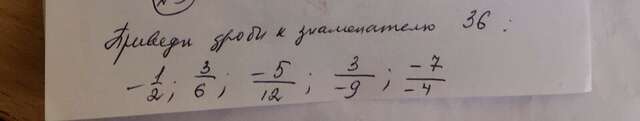 Приведи дроби к знаменателю 36 :
-1/2; 3/6; -5/12; 3/-9; -7/-4